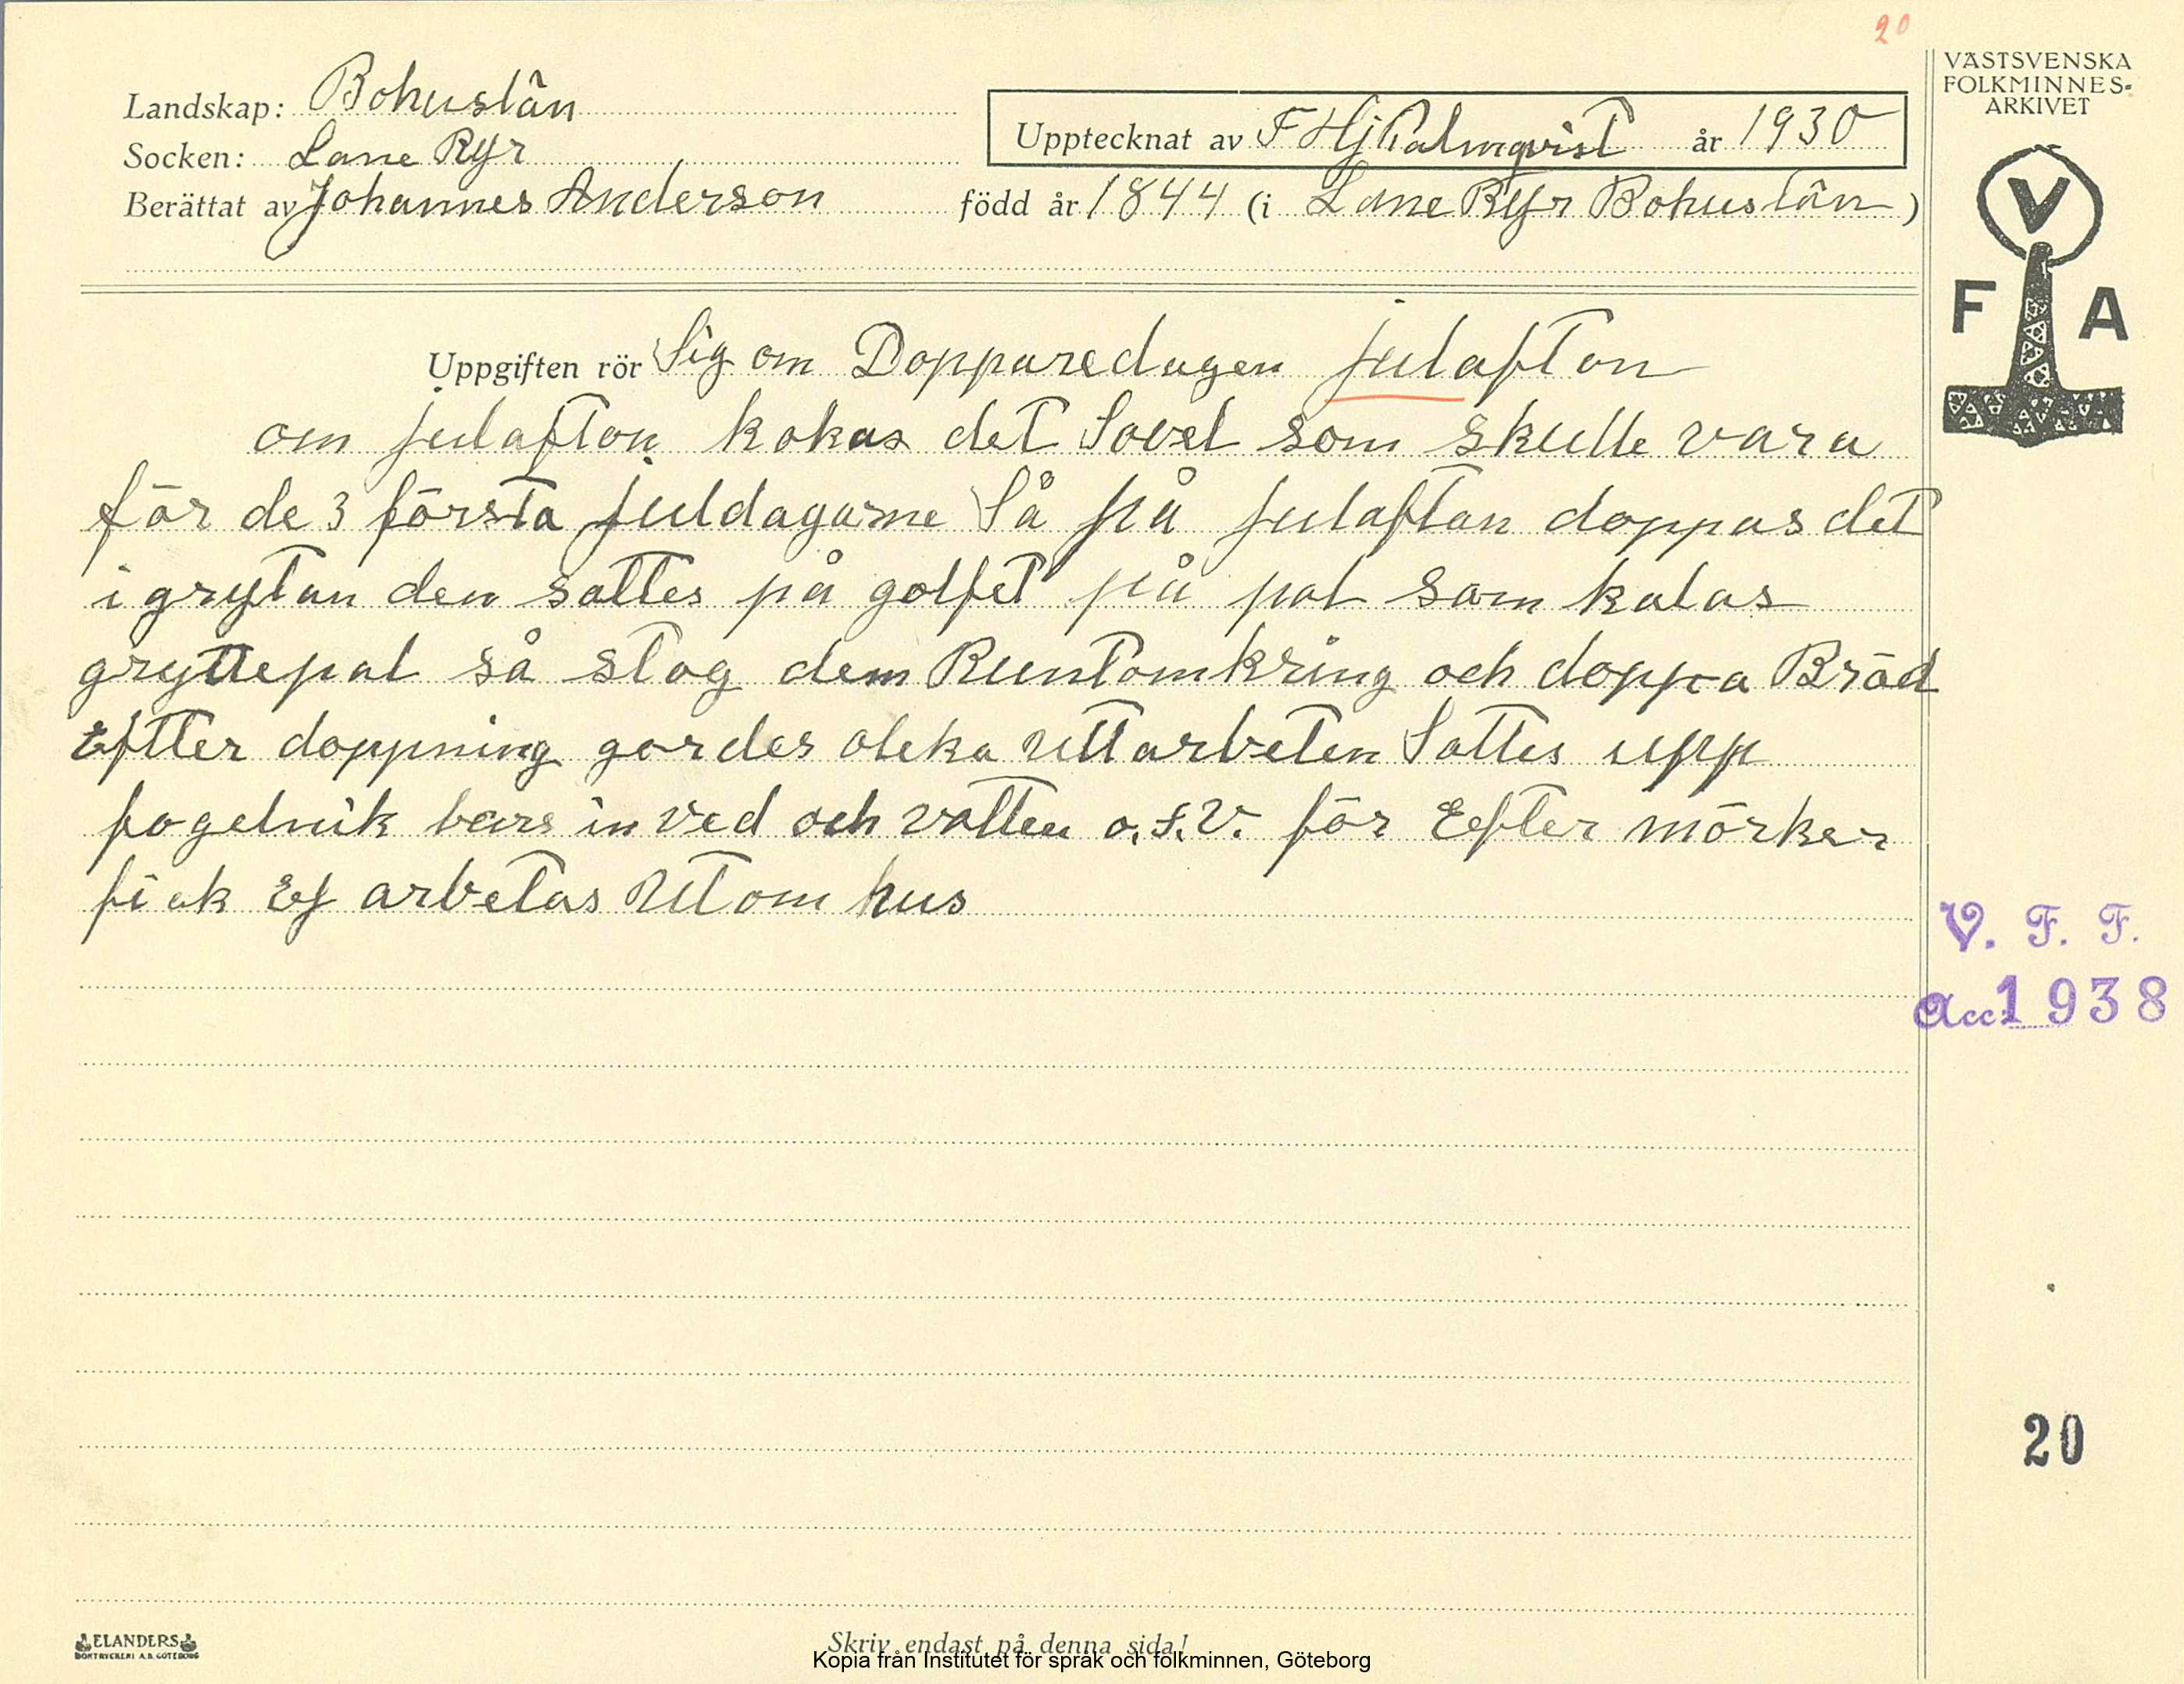 20
VÄSTSVENSKA
FOLKMINNES-
ARKIVET
Landskap: Bohuslän
Upptecknat av F Hj Palmqvist år 1930
Socken: Lane Ryr
Berättat av Johannes Anderson född år 1844 (i Lane Ryr Bohuslän)
V
F A
Uppgiften rör Sig om Dopparedagen julafton
om julafton kokas det Sovel som skulle vara
för de 3 första juldagarne Så på julaftan doppas det
i grytan den sattes på golfet på pal som kalas
gryttepal så stog dem Runtomkring och doppa Bröd
Eftter doppning gordes oleka uttarbeten Sattes upp
fogelnik bars in ved och vatten o.s.v. för Eefter mörker
fick Ej arbetas Utom hus
V. F. F.
Acc. 1938
20
ELANDERS
BOKTRYCKERI A.B. GÖTEBORG
Skriv endast på denna sida!
Kopia från Institutet för språk och folkminnen, Göteborg